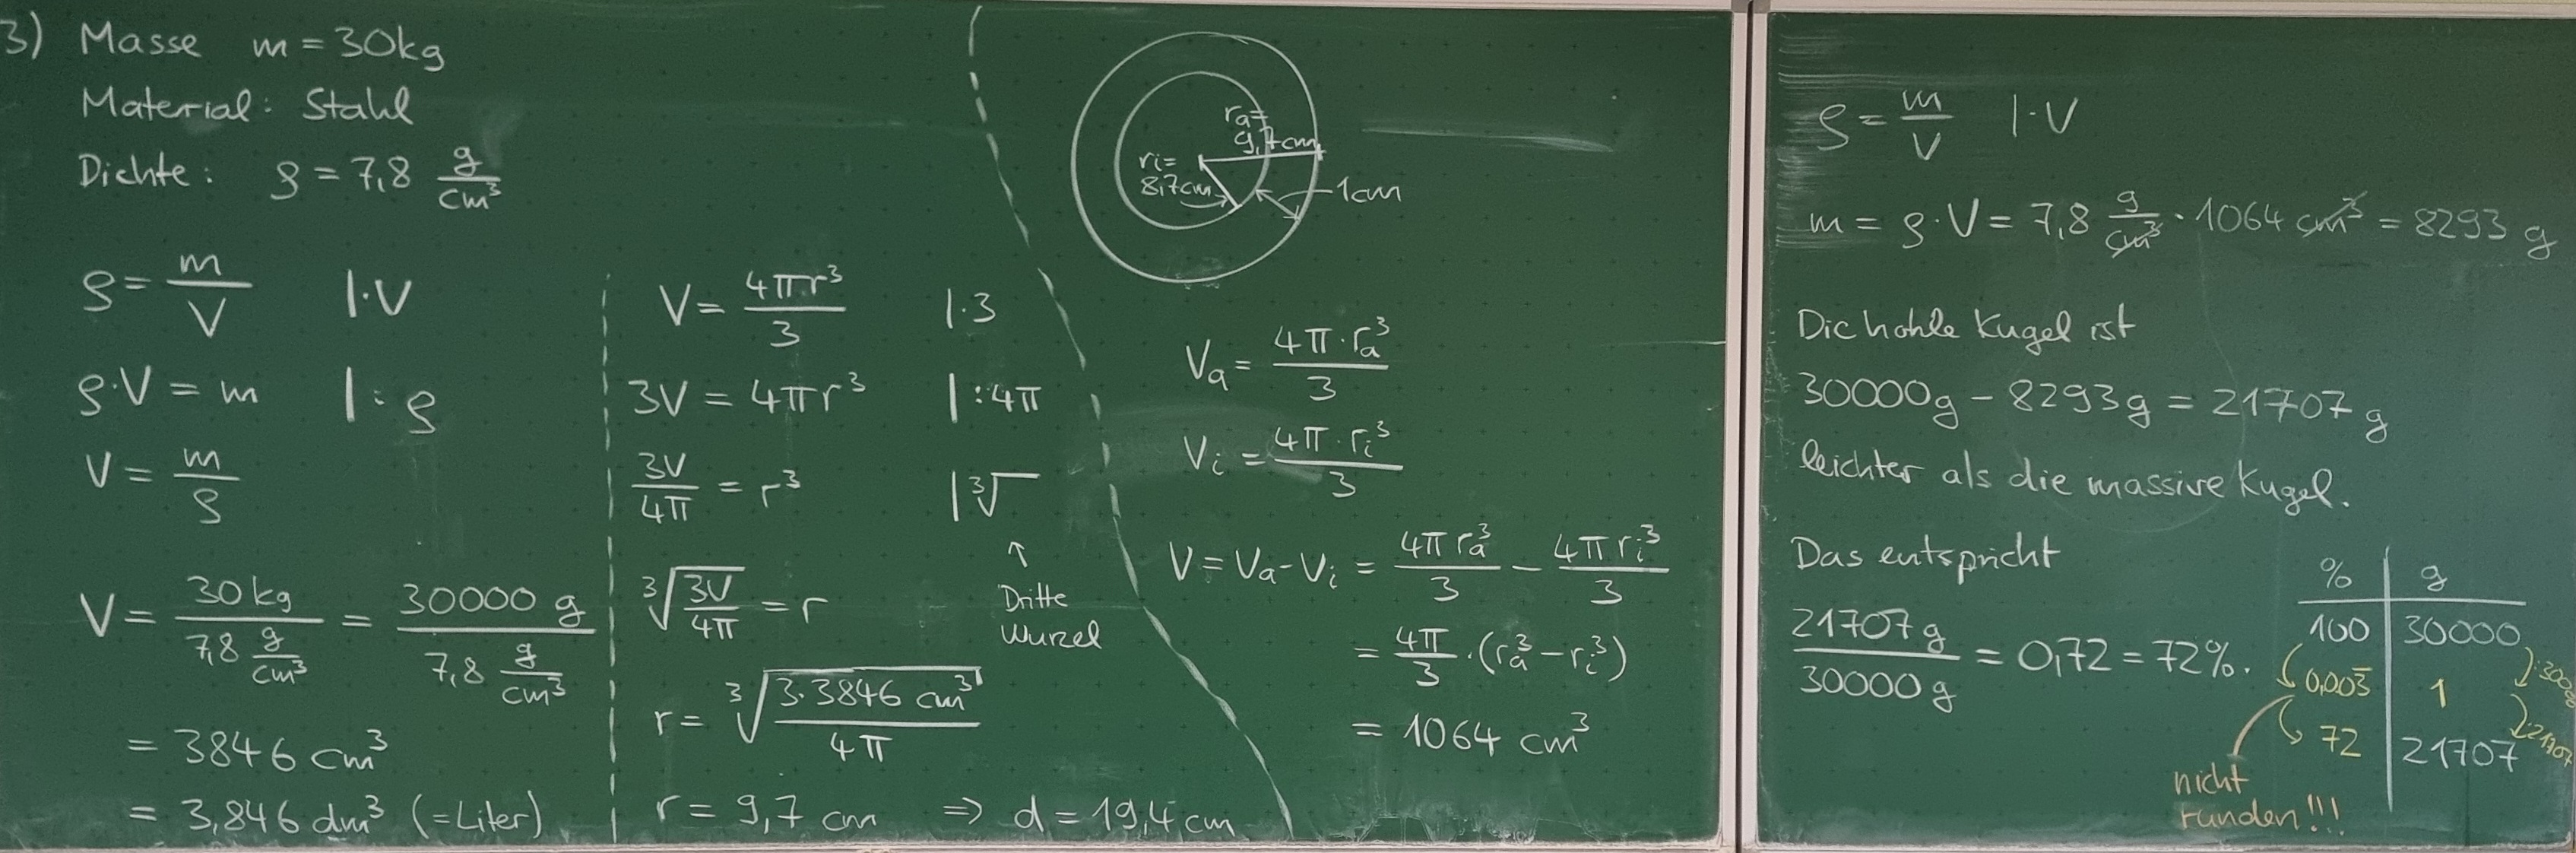 3) Masse m = 30kg
Material: Stahl
Dichte: ρ = 7,8 g/cm³
ρ = m/V |·V
ρ·V = m |:ρ
V = m/ρ
V = 30kg/(7,8 g/cm³) = 30000 g/(7,8 g/cm³)
= 3846 cm³
= 3,846 dm³ (=Liter)
V = 4πr³/3 |·3
3V = 4πr³ |:4π
3V/4π = r³ |³√
↑
Dritte
Wurzel
³√(3V/4π) = r
r = ³√(3·3846 cm³/4π)
r = 9,7 cm ⇒ d = 19,4 cm
ra=
9,7cm
ri=
8,7cm
1cm
Va = 4π·ra³/3
Vi = 4π·ri³/3
V = Va-Vi = 4πra³/3 - 4πri³/3
= 4π/3·(ra³-ri³)
= 1064 cm³
ρ = m/V |·V
m = ρ·V = 7,8 g/cm³ · 1064 cm³ = 8293 g
Die hohle Kugel ist
30000g - 8293g = 21707 g
leichter als die massive Kugel.
Das entspricht
21707 g/30000 g = 0,72 = 72%.
% | g
100 | 30000
0,003̅ | 1
72 | 21707
·21707
nicht
runden!!!